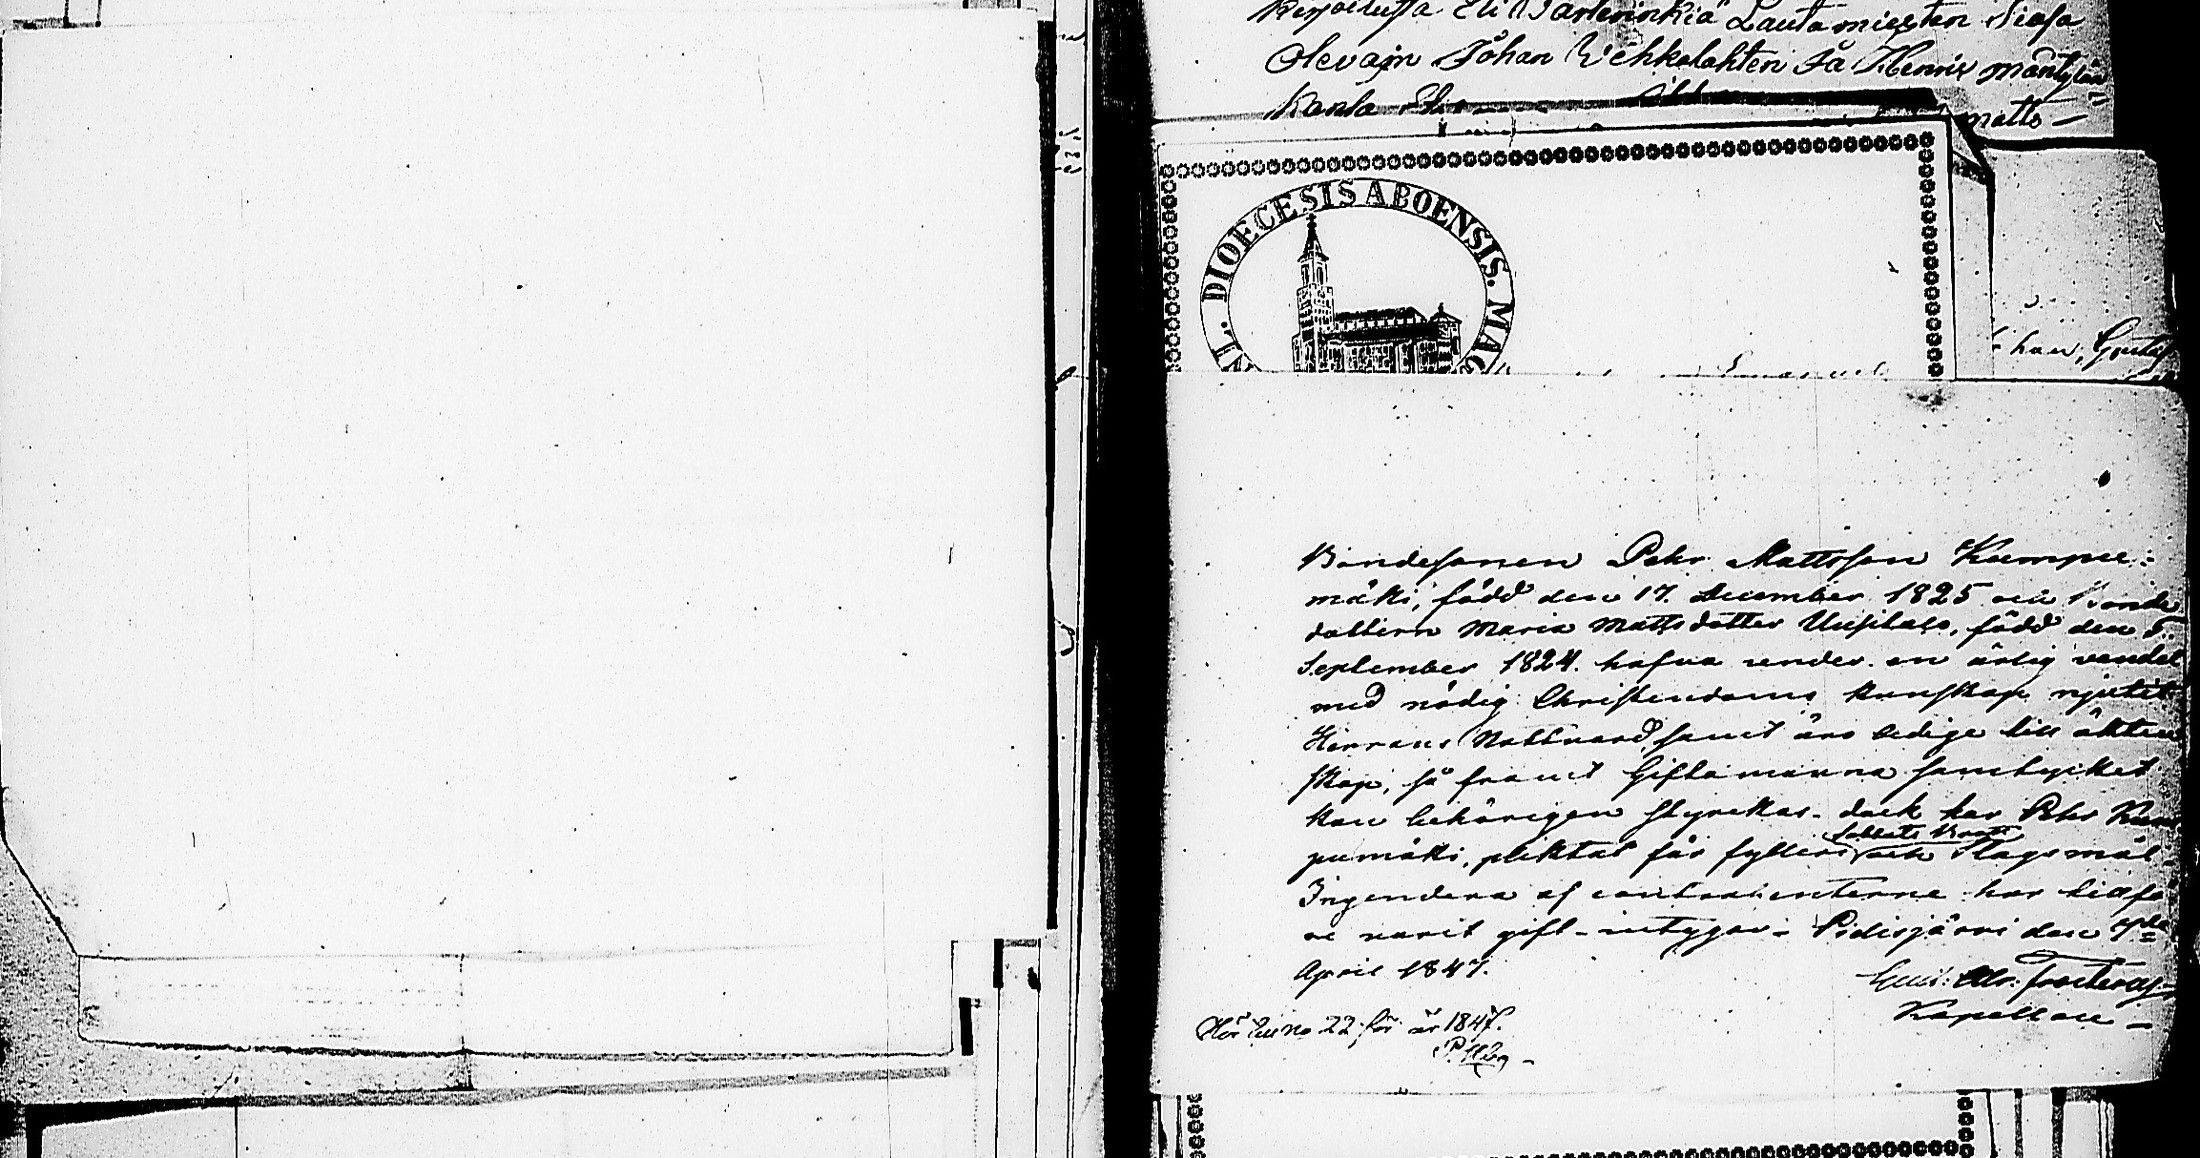 Lautamiesten Siasa
Olevajn Johan Vehkalahten Ja Henric Mäntylän
matts —
DIOECESIS ABOENSIS. MAG
han, Gustaf
Bondesonen Pehr Mattsson Kumpu=
mäki, född den 17. December 1825 och Bonde
dottern Maria Mattsdotter Uusitalo, född den 5.
September 1824. hafva under en ärlig vandel
med nödig Christendoms kunskap njutit
Herrans Nattvard, samt äro ledige till äkten
skap, så framt Giftomanna samtycket
kan behörigen styrckas. dock har Pehr Kum
pumäki, pliktat för fylleri Sabbats Brott och Slagsmål.
Ingendera af contrahenterne har tilldeld
re varit gift – intygar – Pidisjärvi den 7de
April 1847.
Kapellan –
22 för år 1847.